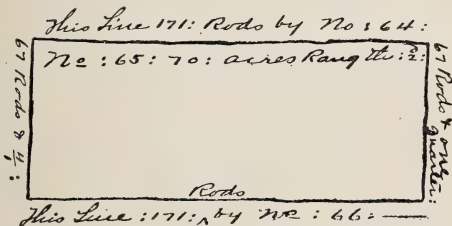 This Line 171: Rods by No: 64:
No: 65: 70: acres Rang the: 2:
67 Rods &
67 Rods & one quarter:
Rods
This Line: 171: ^ by No: 66: